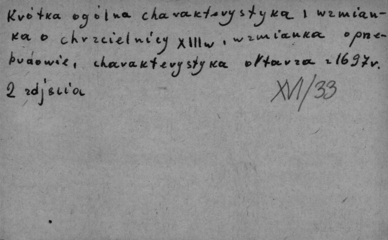 Krótka ogólna charakterystyka i wzmian-
ka o chrzcielnicy XIII w., wzmianka o prze-
budowie, charakterystyka ołtarza z 1697 r.
2 zdjścia
XVI/33